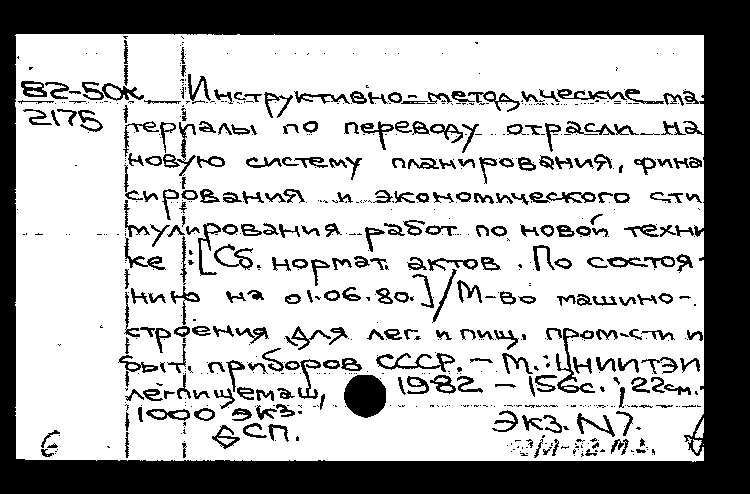 82-50к Инструктивно-методические ма-
2175 териалы по переводу отрасли на
новую систему планирования, финан
сирования и экономического сти
мулирования работ по новой техни
ке :[Сб. нормат. актов. По состоя-
нию на 01.06.80.]/М-во машино-
строения для лег. и пищ. пром-сти и
быт. приборов СССР. – М.: ЦНИИТЭИ
легпищемаш, 1982 – 156с.; 22см.-
1000 экз.
ДСП. Экз. N7.
6